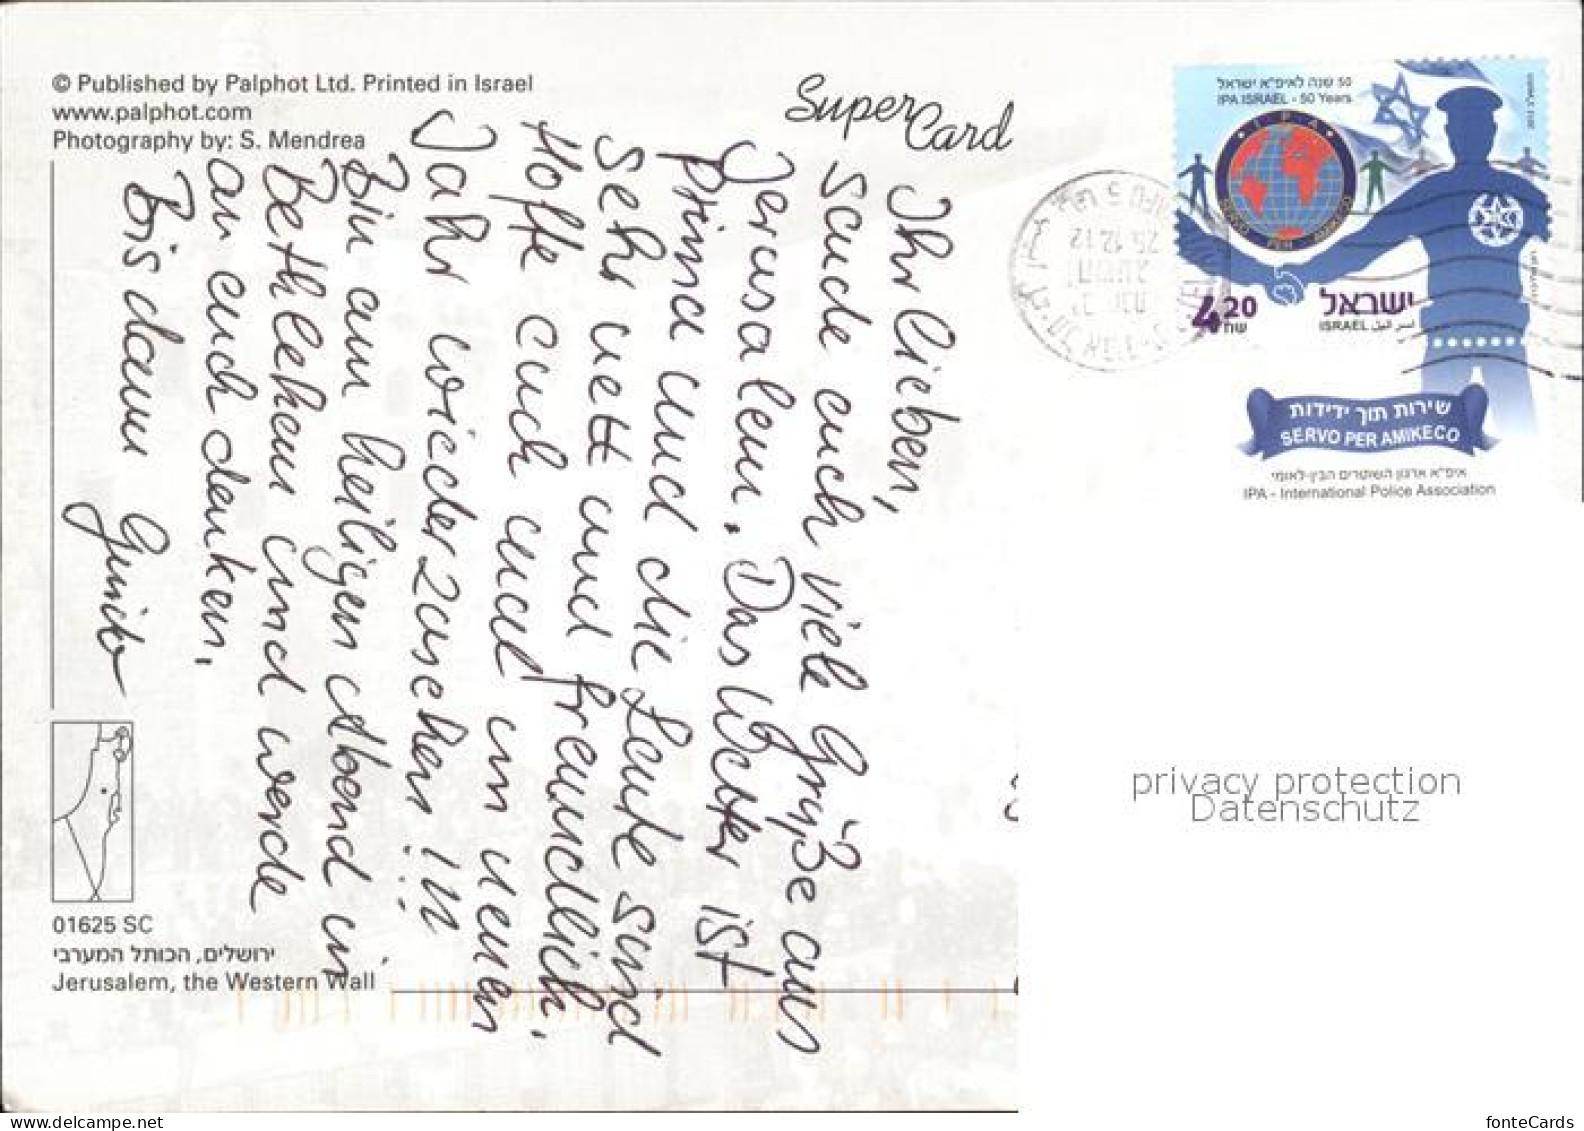 © Published by Palphot Ltd. Printed in Israel
www.palphot.com
Photography by: S. Mendrea
Super Card
50 שנה לאיפ"א ישראל
IPA ISRAEL - 50 Years
IPA
SERVO PER AMIKECO
4.20
שח
ישראל
ISRAEL اسرائيل
שירות תוך ידידות
SERVO PER AMIKECO
איפ"א ארגון השוטרים הבין-לאומי
IPA - International Police Association
25.12.12
Ihr Lieben,
sende euch viele Grüße aus
Jerusalem. Das Wetter ist
prima und die Leute sind
sehr nett und freundlich.
Hoffe euch auch im neuen
Jahr wiederzusehen !!!
Bin am heiligen Abend in
Bethlehem und werde
an euch denken.
Bis dann
01625 SC
ירושלים, הכותל המערבי
Jerusalem, the Western Wall
privacy protection
Datenschutz
fonteCards